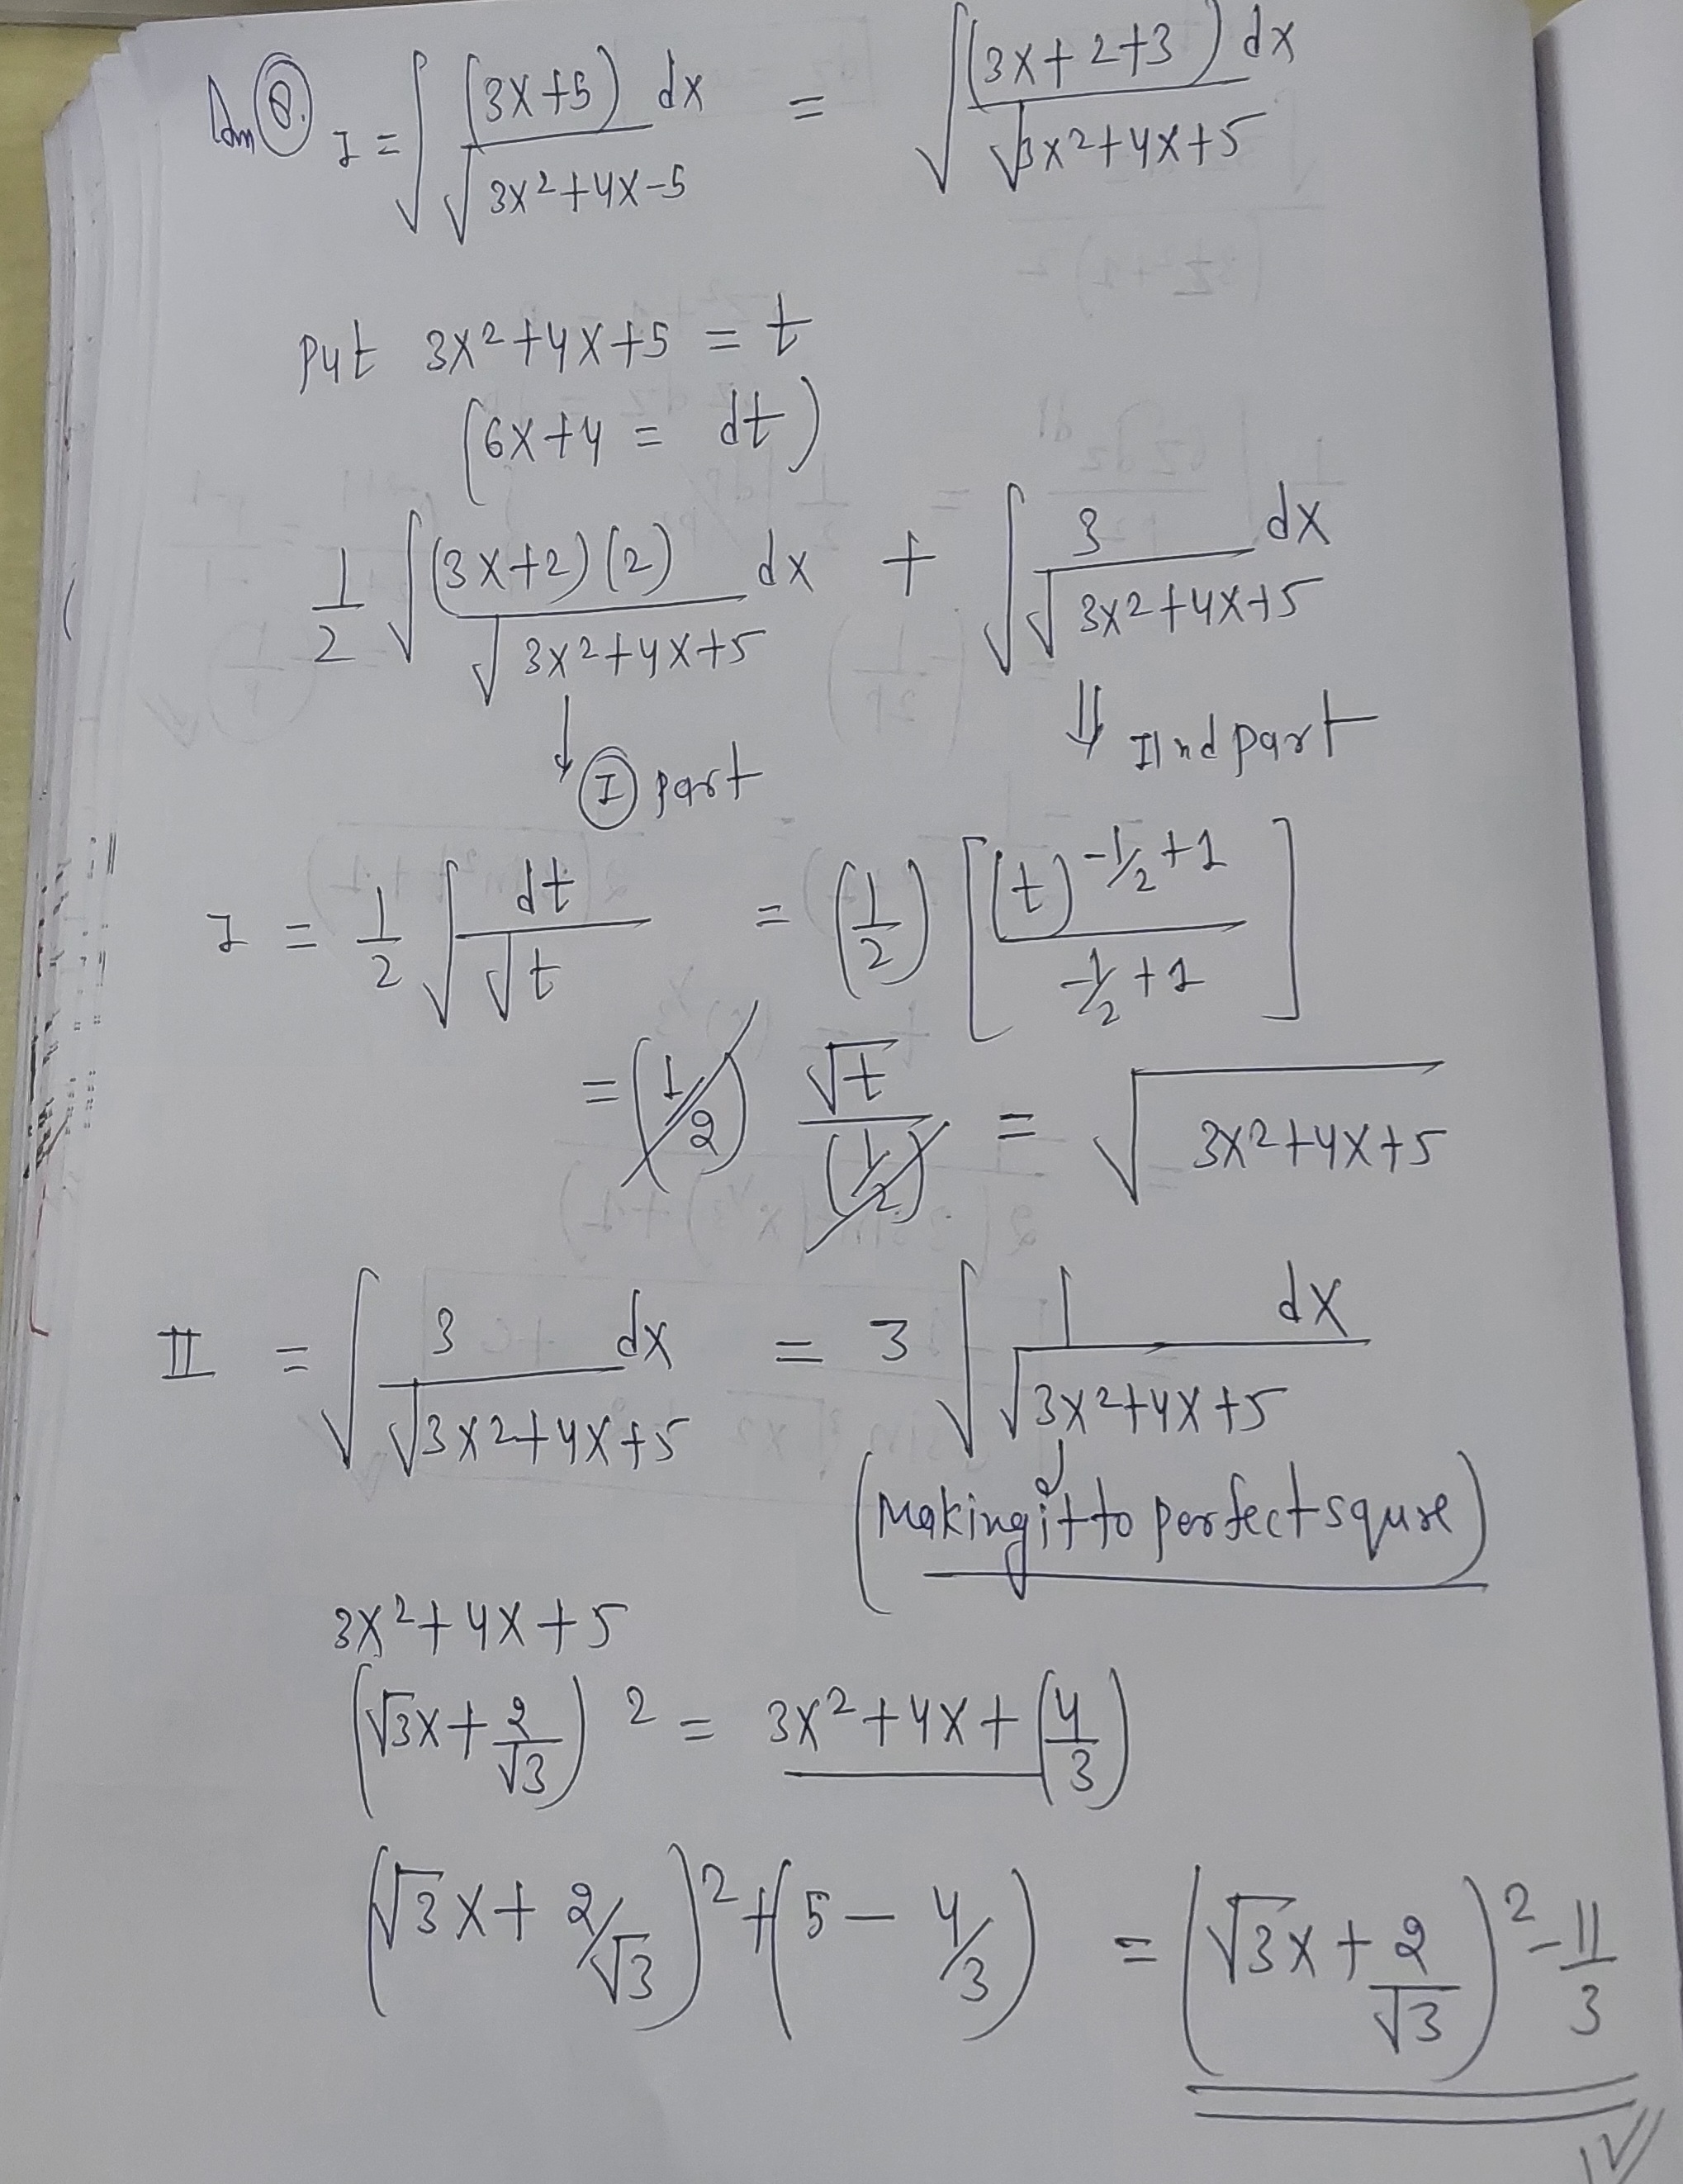 Ans 8. I = ∫ (3x+5) dx / √(3x²+4x-5) = ∫ (3x+2+3) dx / √(3x²+4x+5)
Put 3x²+4x+5 = t
(6x+4 = dt)
1/2 ∫ (3x+2)(2) / √(3x²+4x+5) dx + ∫ 3 / √(3x²+4x+5) dx
↓ I part ⇓ IInd part
I = 1/2 ∫ dt/√t = (1/2) [(t)^(-1/2+1) / (-1/2+1)]
= (1/2) √t/(1/2) = √(3x²+4x+5)
II = ∫ 3 dx / √(3x²+4x+5) = 3 ∫ 1 dx / √(3x²+4x+5)
(Making it to perfect squre)
3x²+4x+5
(√3x + 2/√3)² = 3x²+4x+(4/3)
(√3x + 2/√3)² + (5 - 4/3) = (√3x + 2/√3)² - 11/3